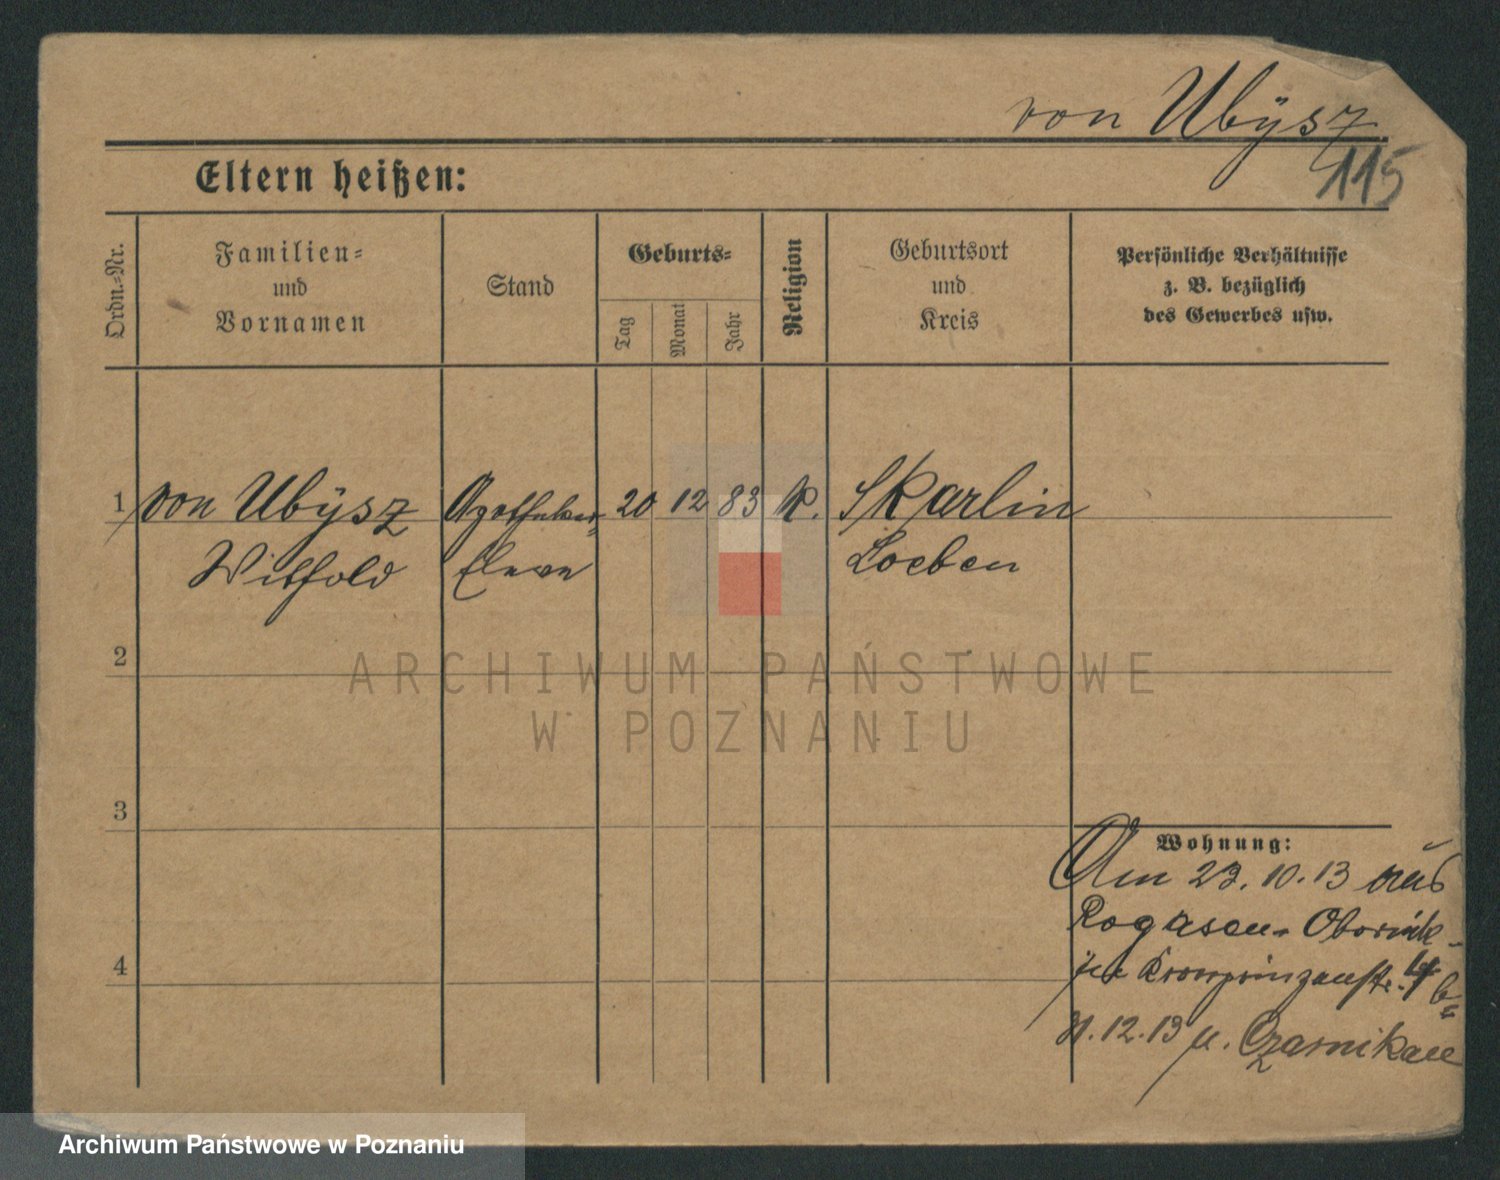 von Ubÿsz
115
Eltern heißen:
Ordn.-Nr.
Familien-
und
Vornamen
Stand
Geburts-
Tag
Monat
Jahr
Religion
Geburtsort
und
Kreis
Persönliche Verhältnisse
z. B. bezüglich
des Gewerbes usw.
1 von Ubÿsz Apotheker- 20 12 83 k. Skarlin
Withold Eleve Loeben
2
3
4
Wohnung:
Am 23.10.13 aus
Rogasen-Obornik
Kronprinzenstr. 4 b
12.13 n. Czarnikau
ARCHIWUM PAŃSTWOWE
W POZNANIU
Archiwum Państwowe w Poznaniu